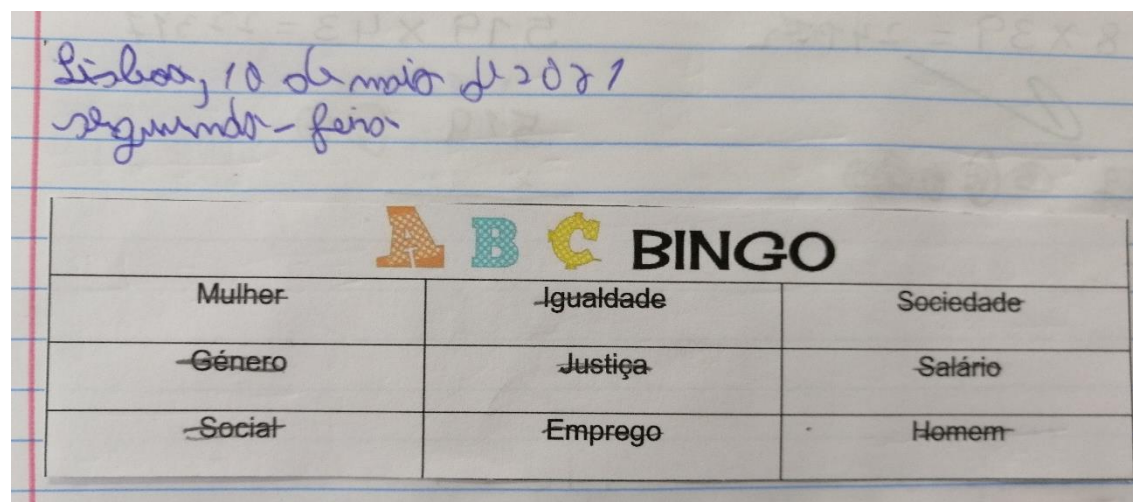 Lisboa, 10 de maio de 2021
segunda-feira
A B C BINGO
Mulher Igualdade Sociedade
Género Justiça Salário
Social Emprego Homem